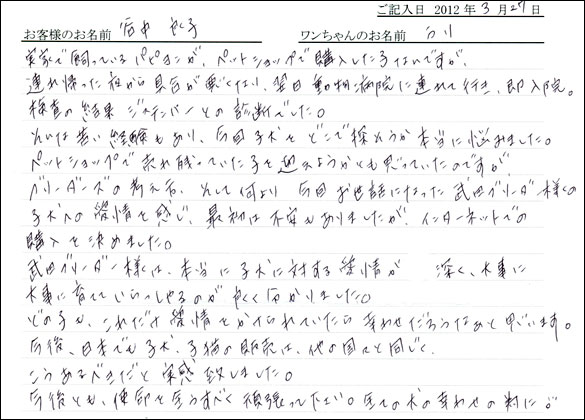 ご記入日 2012年3月27日
お客様のお名前 ワンちゃんのお名前
実家で飼っているパピヨンが、ペットショップで購入した子なのですが、
連れ帰った夜から具合が悪くなり、翌日動物病院に連れて行き、即入院。
検査の結果 ジステンバーとの診断でした。
そんな苦い経験もあり、今回子犬をどこで探そうか本当に悩みました。
ペットショップで売れ残っていた子を迎えようかとも思っていたのですが、
ブリーダーズの考え方、そして何より 今回お世話になった武田ブリーダー様の
子犬への愛情を感じ、最初は不安もありましたが、インターネットでの
購入を決めました。
武田ブリーダー様は、本当に子犬に対する愛情が 深く、大事に
大事に育てていらっしゃるのがよく分かりました。
どの子も、これだけ愛情をかけられていたら幸わせだろうなぁと思います。
今後、日本でも子犬、子猫の販売は、他の国々と同じく、
こうあるべきだと実感致しました。
今後とも、使命を全うすべく頑張って下さい。全ての犬の幸わせの為に。